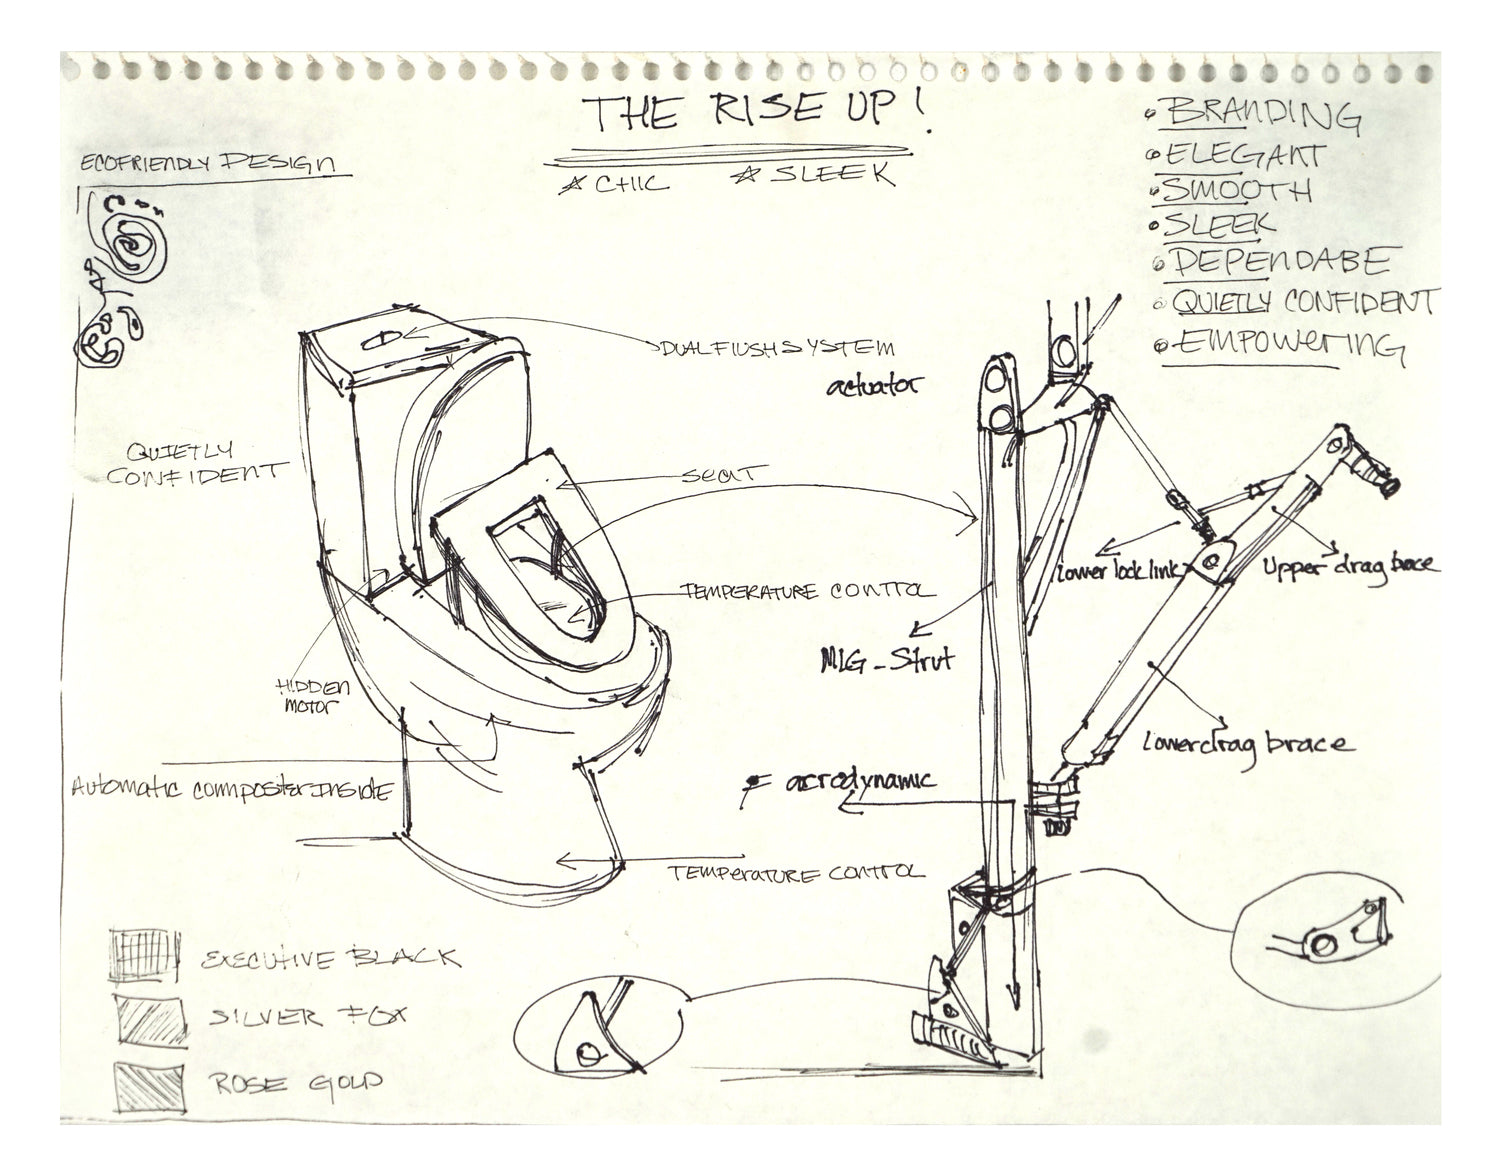 THE RISE UP!
☆ CHIC ☆ SLEEK
ECOFRIENDLY DESIGN
• BRANDING
• ELEGANT
• SMOOTH
• SLEEK
• DEPENDABE
• QUIETLY CONFIDENT
• EMPOWERING
DUAL FLUSH SYSTEM
actuator
QUIETLY
CONFIDENT
SEAT
TEMPERATURE CONTROL
Lower lock link
Upper drag brace
MLG-Strut
HIDDEN
MOTOR
Lower drag brace
AUTOMATIC COMPOSTER INSIDE
F aerodynamic
TEMPERATURE CONTROL
EXECUTIVE BLACK
SILVER FOX
ROSE GOLD